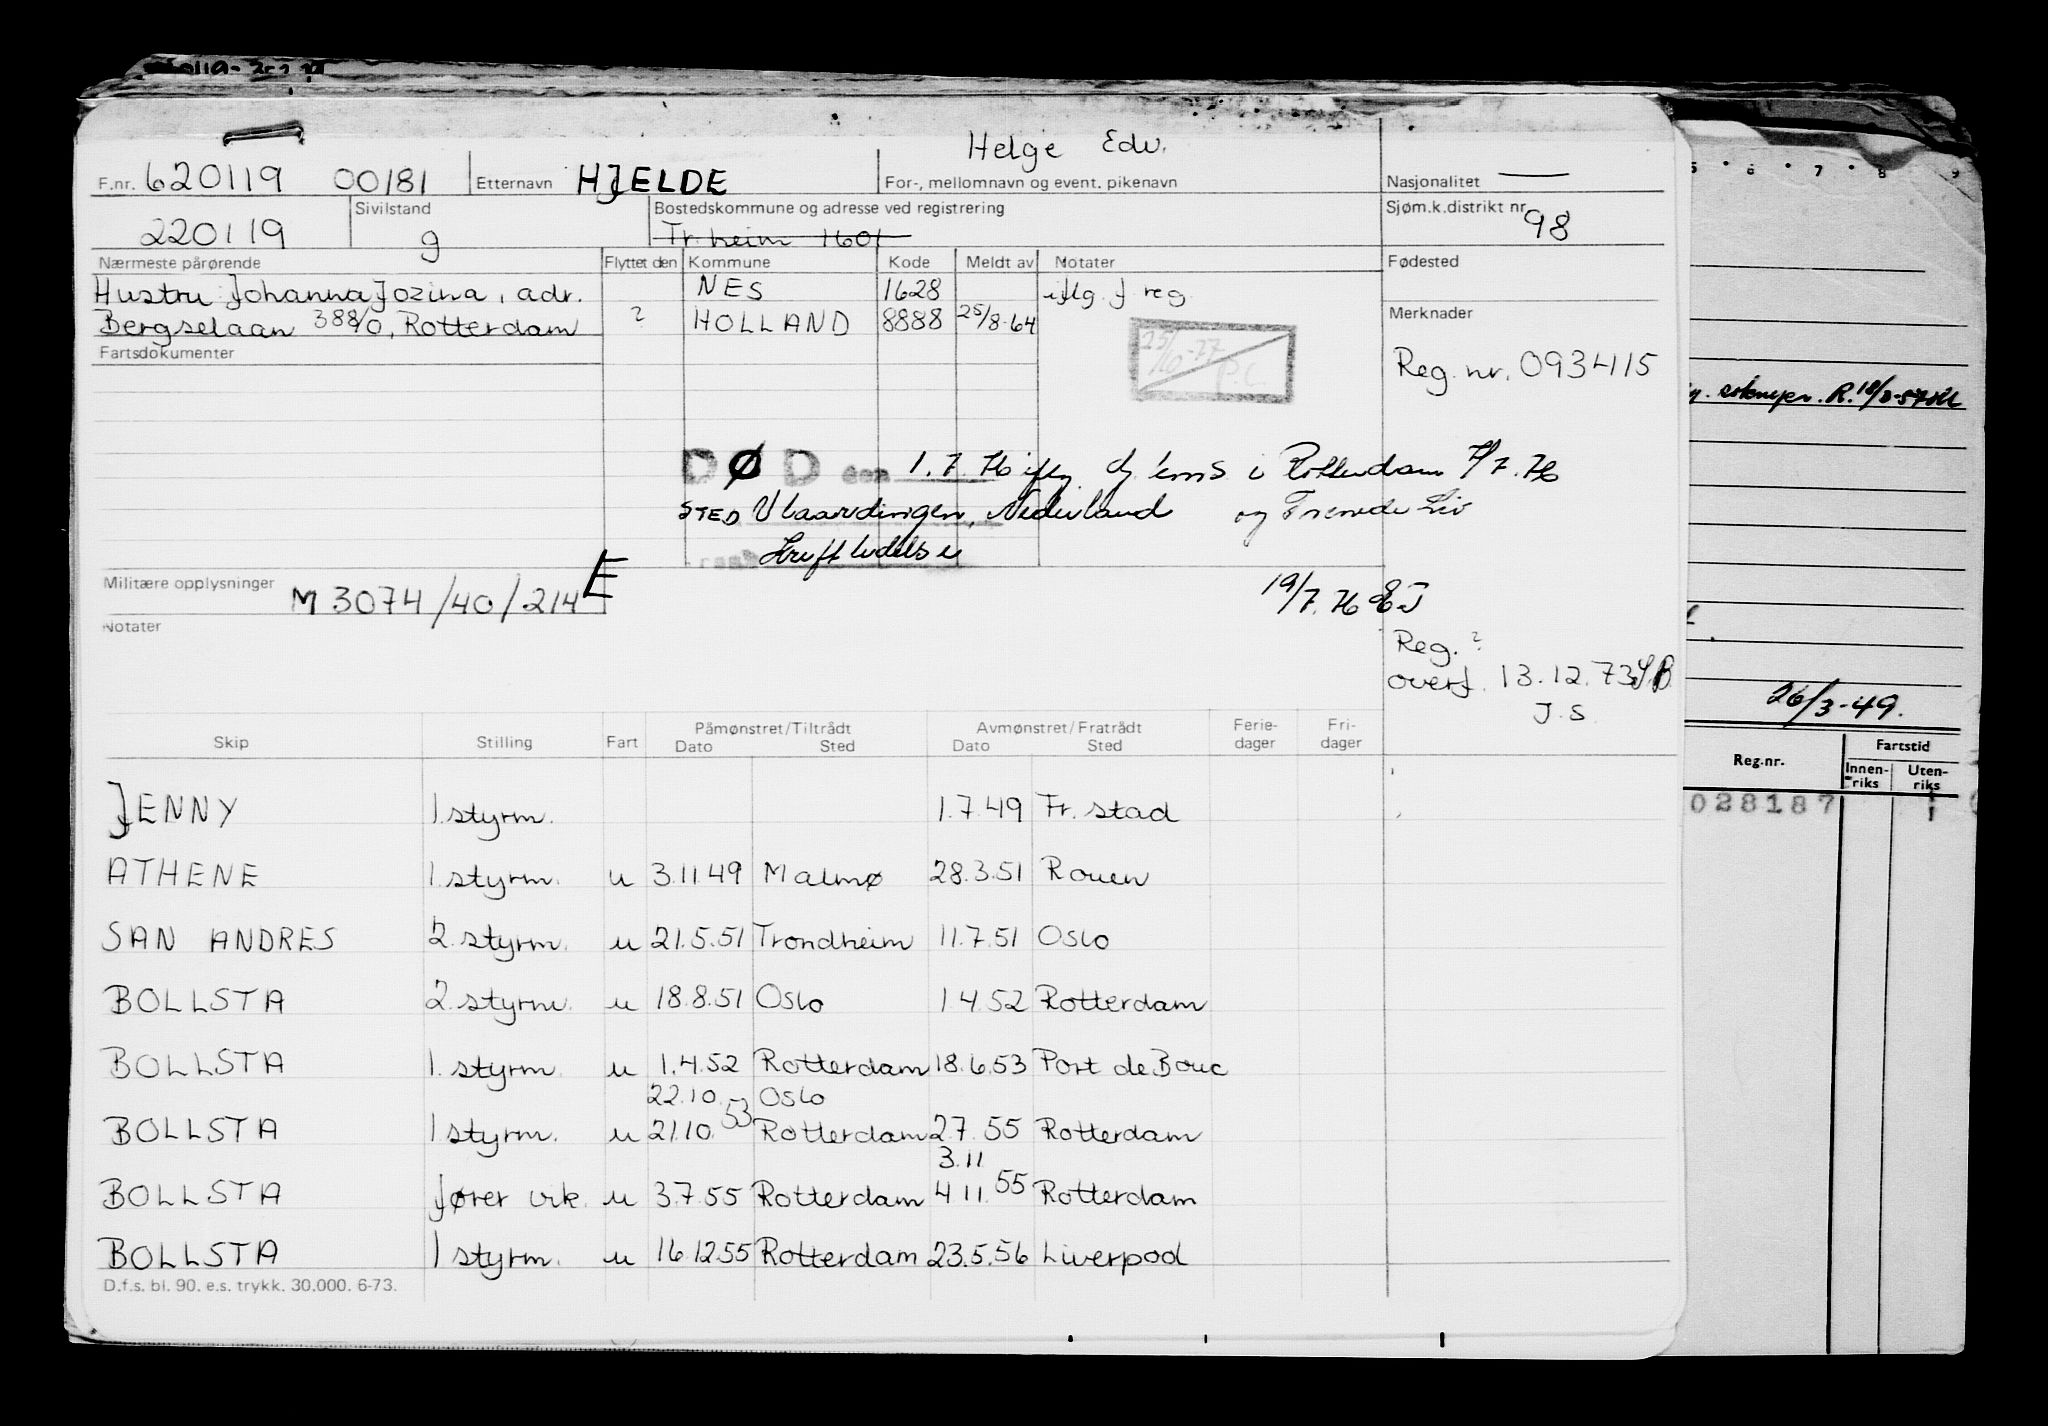 F.nr. 620119 00181 Etternavn HJELDE Helge Edv. For-, mellomnavn og event. pikenavn Nasjonalitet —
220119 Sivilstand g Bostedskommune og adresse ved registrering Tr.heim 1601 Sjøm.k.distrikt nr. 98
Nærmeste pårørende Flyttet den Kommune Kode Meldt av Notater Fødested
Hustru Johanna Jozina, adr. NES 1628 iflg. J reg.
Bergselaan 388/0, Rotterdam ? HOLLAND 8888 25/8-64 Merknader
Fartsdokumenter
Reg. nr. 093415
DØD den 1.7.76 iflg. i Rotterdam 7/7.76
STED Vlaardingen, Nederland og
19/7.76
Militære opplysninger M 3074/40/214 E
Notater
Reg. ?
overf. 13.12.73
J.S.
Skip Stilling Fart Påmønstret/Tiltrådt Dato Sted Avmønstret/Fratrådt Dato Sted Ferie-dager Fri-dager
JENNY 1.styrm. 1.7.49 Fr.stad
ATHENE 1.styrm. u 3.11.49 Malmø 28.3.51 Rouen
SAN ANDRES 2.styrm. u 21.5.51 Trondheim 11.7.51 Oslo
BOLLSTA 2.styrm. u 18.8.51 Oslo 1.4.52 Rotterdam
BOLLSTA 1.styrm. u 1.4.52 Rotterdam 18.6.53 Port de Bouc
22.10. Oslo
BOLLSTA 1 styrm. u 21.10. 53 Rotterdam 2.7.55 Rotterdam
3.11
BOLLSTA fører vik. u 3.7.55 Rotterdam 4.11.55 Rotterdam
BOLLSTA 1 styrm. u 16.12.55 Rotterdam 23.5.56 Liverpool
D.f.s. bl. 90. e.s. trykk. 30.000. 6-73.
5 6 7 8 9
26/3-49.
Reg.nr. Fartstid
Innen-riks Uten-riks
028187 1